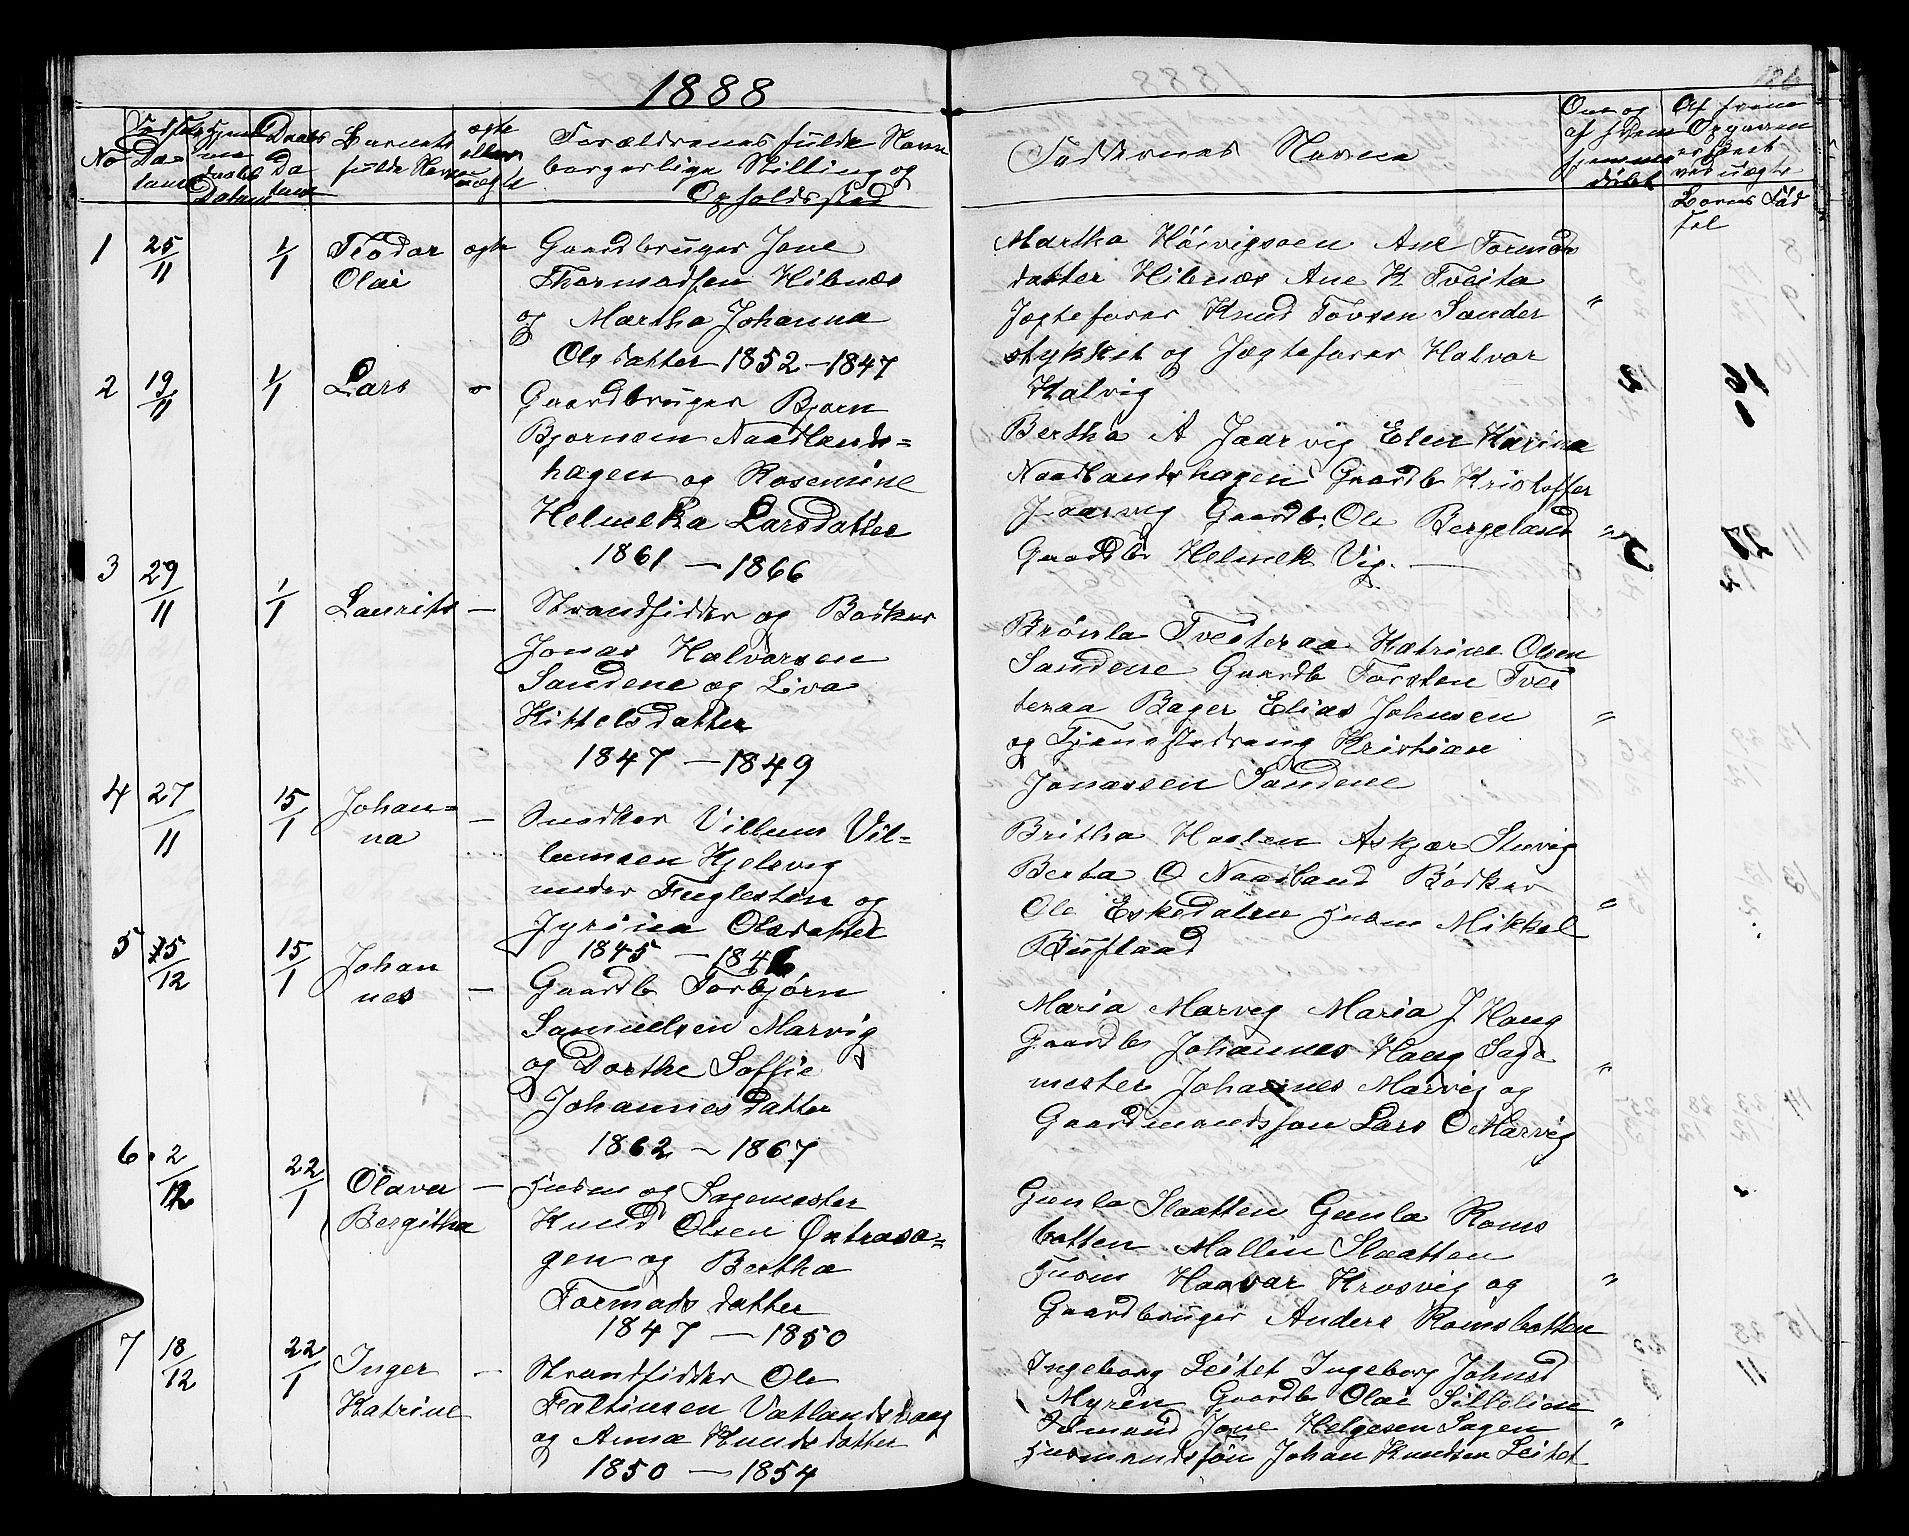 1888
No
Fødsels Da tum
Hjemme daabs Datum
Daabs Da tum
Barnets fulde Navn
ægte eller uægte
Forældrenes fulde Navn
borgerlige Stilling og
Opholdssted
Faddernes Navne
Om og af hvem hjemme døbt
Af hvem Opgaven er skeet ved uægte Børns Fødsel
1 25/11 1/1 Teodor Olai ægte
Gaardbruger Jone
Thormodsen Hibnæs
og Martha Johanna
Olsdatter 1852 - 1847
Martha Høivigsoen Ane Tormods
datter Hibnæs Ane K Tveita
Jægtefører Knud Tovsen Sander
stykket og Jægtefører Halvor
Halvig
"
2 19/11 1/1 Lars
Gaardbruger Bjørn
Bjornsen Naadlands=
hagen og Rosemine
Helmeka Larsdatter
1861 - 1866
Bertha A Jaarvig Elen Karina
Naadlandshagen Gaardb Kristoffer
Jaarvig Gaardb. Ole Bergeland
Gaardb Helmek Vig. —
"
3 29/11 1/1 Laurits —
Strandsidder og Bødker
Jonas Halvorsen
Sandene og Liva
Kittelsdatter
1847 - 1849
Brønla Tveiteraa Katrine Olsen
Sandene Gaardb Torsten Tvei
teraa Bager Elias Johnsen
og Tjenestedreng Kristian
Jonassen Sandene
"
4 27/11 15/1 Johan=
na —
Snedker Villum Vil=
lumsen Hjelsvig
under Fuglesten og
Jyrina Olsdatter
1845 - 1846
Britha Haslen Askjær Stuvig
Berta O Naadland Bødker
Ole Eskedalen Husm Mikkel
Buflaad
"
5 15/12 15/1 Johan
nes —
Gaardb Torbjørn
Samuelsen Marvig
og Dorthe Soffie
Johannesdatter
1862 - 1867
Maria Marvig Maria J Haug
Gaardb Johannes Haug Sage
mester Johannes Marvig og
Gaardmandssøn Lars O Marvig
"
6. 2/12 22/1 Olava
Bergitha —
Husm og Sagemester
Knud Olsen Østrasa=
gen og Bertha
Tormodsdatter
1847 - 1850
Gunla Slaatten Gunla Roms
botten Mallin Slaatten
Husm Haavar Krosvig og
Gaardbruger Anders Romsbotten
"
7 18/12 22/1 Inger
Katrine —
Strandsidder Ole
Faltinsen Vatlandsvaag
og Anna Knudsdatter
1850 - 1854
Ingeborg Leitet Ingeborg Johnsd
Myren Gaardb Olai
Jone Helgesen Sagen
Husmandssøn Johan Knudsen Leitet
"